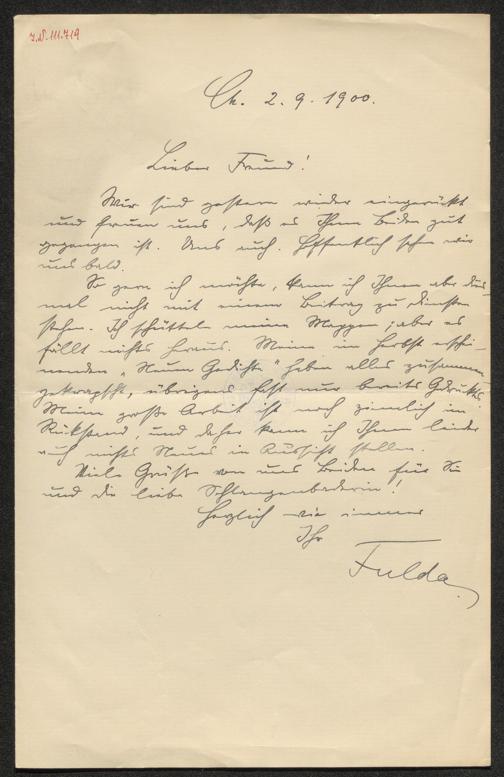 I.N. 111.719
Ch. 2. 9. 1900.
Lieber Freund!
Wir sind gestern wieder eingerückt
und freuen uns, daß es Ihnen Beiden gut
gegangen ist. Uns auch. Hoffentlich sehn wir
uns bald.
So gern ich möchte, kann ich Ihnen aber dies-
mal nicht mit einem Beitrag zu Diensten
stehen. Ich schüttele meine Mappen; aber es
fällt nichts heraus. Meine im Herbst erschei-
nenden „Neuen Gedichte" haben alles zusammen-
gekratzt, übrigens fast nur bereits Gedrucktes.
Meine große Arbeit ist noch ziemlich im
Rückstand, und daher kann ich Ihnen leider
auch nichts Neues in Aussicht stellen.
Viele Grüße von uns Beiden für Sie
und die liebe Schlangenbaderin!
Herzlich wie immer
Ihr
Fulda.